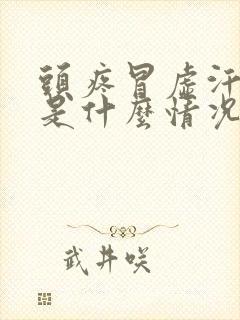 頭疼冒虛汗
是什麼情況
武井咲